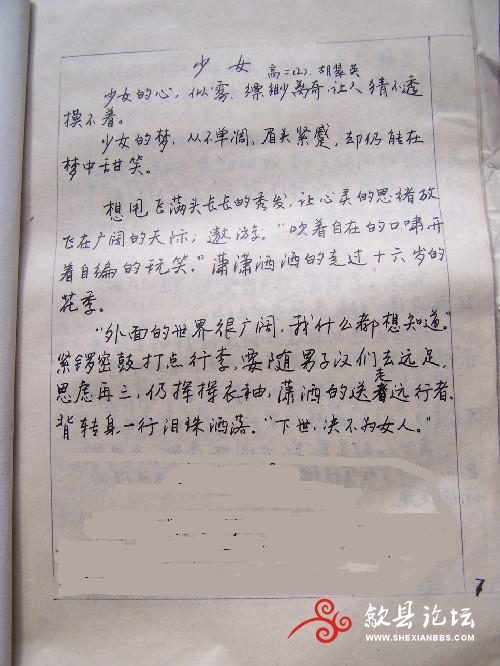 少女 高二(2). 胡翠英
少女的心，似雾、缥缈离奇，让人猜不透
摸不着。
少女的梦，从不单调，眉头紧蹙，却仍能在
梦中甜笑。
想甩飞满头长长的秀发，让心灵的思绪放
飞在广阔的天际，遨游。“吹着自在的口啸，开
着自编的玩笑。”潇潇洒洒的走过十六岁的
花季。
“外面的世界很广阔，我什么都想知道。”
紧锣密鼓打点行李，要随男子汉们去远足，
思虑再三，仍挥挥衣袖，潇洒的送走远行者，
背转身一行泪珠洒落。“下世，决不为女人。”
7
歙县论坛
WWW.SHEXIANBBS.COM